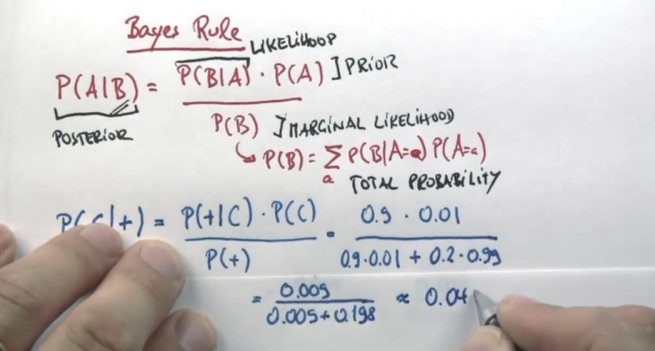 Bayes Rule
LIKELIHOOD
P(A|B) = P(B|A) · P(A) ] PRIOR
POSTERIOR
P(B) ] MARGINAL LIKELIHOOD
↳ P(B) = Σ P(B|A=a) P(A=a)
a TOTAL PROBABILITY
P(C|+) = P(+|C) · P(C) = 0.9 · 0.01
P(+) 0.9·0.01 + 0.2·0.99
= 0.009 ≈ 0.04
0.009+0.198